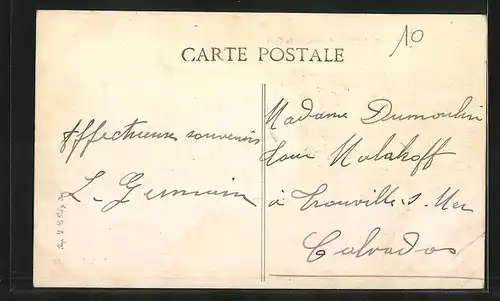 10
CARTE POSTALE
Affectueux souvenirs
L. Germain
Madame Dumoulin
Cour Malakoff
à Trouville-s-Mer
Calvados